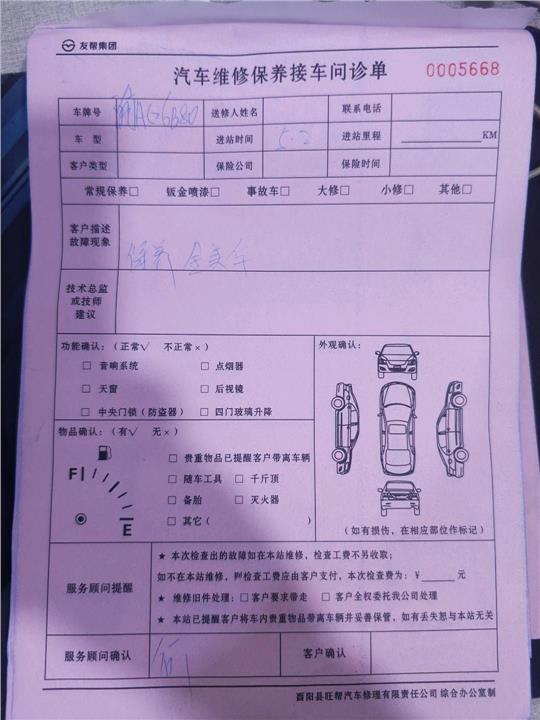 友帮集团
汽车维修保养接车问诊单 0005668
车牌号 送修人姓名 联系电话
车 型 进站时间 5.2 进站里程 KM
客户类型 保险公司 保险时间
常规保养□ 钣金喷漆□ 事故车□ 大修□ 小修□ 其他□
客户描述
故障现象
保养 全美车
技术总监
或技师
建议
功能确认：（正常√ 不正常×） 外观确认：
□ 音响系统 □ 点烟器
□ 天窗 □ 后视镜
□ 中央门锁（防盗器） □ 四门玻璃升降
物品确认：（有√ 无×）
□ 贵重物品已提醒客户带离车辆
F □ 随车工具 □ 千斤顶
□ 备胎 □ 灭火器
E □ 其它（ ）
（如有损伤，在相应部位作标记）
服务顾问提醒
★ 本次检查出的故障如在本站维修，检查工费不另收取；
如不在本站维修，则检查工费应由客户支付，本次检查费为：￥ 元
★ 维修旧件处理：□ 客户要求带走 □ 客户全权委托我公司处理
★ 本站已提醒客户将车内贵重物品带离车辆并妥善保管，如有丢失恕与本站无关
服务顾问确认 客户确认
酉阳县旺帮汽车修理有限责任公司 综合办公室制